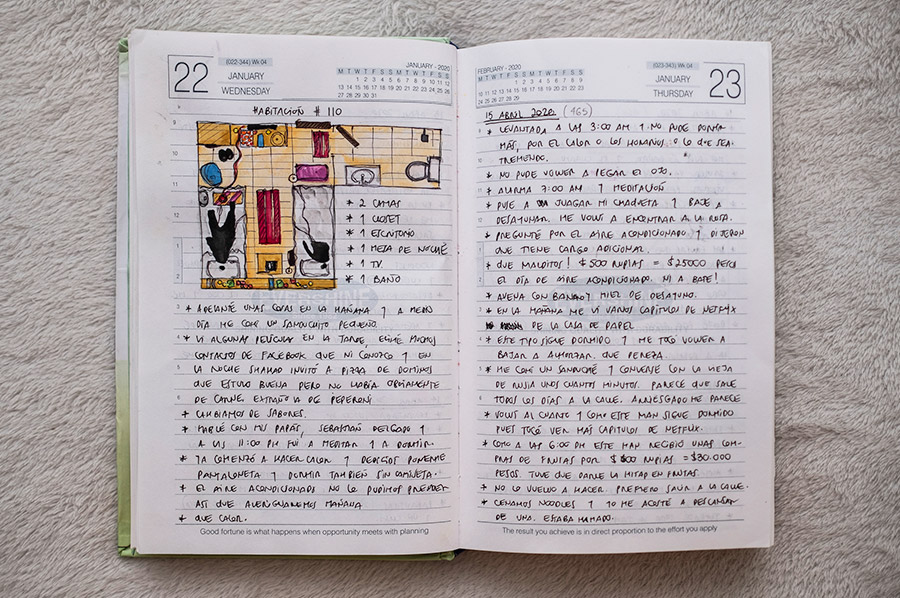 22
(022-344) Wk 04
JANUARY
WEDNESDAY
JANUARY - 2020
M T W T F S S M T W T F S S
1 2 3 4 5 6 7 8 9 10 11 12
13 14 15 16 17 18 19 20 21 22 23 24 25 26
27 28 29 30 31
HABITACIÓN # 110
* 2 CAMAS
* 1 CLOSET
* 1 ESCRITORIO
* 1 MESA DE NOCHE
* 1 TV
* 1 BAÑO
* ADELANTÉ UNAS COSAS EN LA MAÑANA Y A MEDIO
DÍA ME COMÍ UN SANDUCHITO PEQUEÑO.
* VI ALGUNAS PELÍCULA EN LA TARDE, ELIMÉ MUCHOS
CONTACTOS DE FACEBOOK QUE NI CONOZCO Y EN
LA NOCHE INVITÓ A PIZZA DE DOMINOS
QUE ESTUVO BUENA PERO NO HABÍA OBVIAMENTE
DE CARNE. EXTRAÑO LA DE PEPERONI
* CAMBIAMOS DE SABORES.
* HABLÉ CON MIS PAPÁS, SEBASTIAN DELGADO Y
A LAS 11:00 PM FUI A MEDITAR Y A DORMIR.
* YA COMENZÓ A HACER CALOR Y DECIDÍ PONERME
PANTALONETA Y DORMIR TAMBIÉN SIN CAMISETA.
* EL AIRE ACONDICIONADO NO LO PUDIMOS PRENDER
ASÍ QUE AVERIGUAREMOS MAÑANA
* QUE CALOR.
Good fortune is what happens when opportunity meets with planning
FEBRUARY - 2020
M T W T F S S M T W T F S S
1 2 3 4 5 6 7 8 9
10 11 12 13 14 15 16 17 18 19 20 21 22 23
24 25 26 27 28 29
(023-343) Wk 04
JANUARY
THURSDAY
23
15 ABRIL 2020 (465)
* LEVANTADA A LAS 3:00 AM Y NO PUDE DORMIR
MÁS, POR EL CALOR O LOS HORARIOS O LO QUE SEA.
TREMENDO.
* NO PUDE VOLVER A PEGAR EL OJO.
* ALARMA 7:00 AM Y MEDITACIÓN
* PUSE A JUAGAR MI CHAQUETA Y BAJE A
DESAYUNAR. ME VOLVÍ A ENCONTRAR A LA RUSA.
* PREGUNTÉ POR EL AIRE ACONDICIONADO Y DIJERON
QUE TIENE CARGO ADICIONAL.
* QUE MALDITOS! $500 RUPIAS = $25000 PESOS
EL DÍA DE AIRE ACONDICIONADO. NI A BATE!
* AVENA CON BANANO Y MIEL DE DESAYUNO.
* EN LA MAÑANA ME VI VARIOS CAPITULOS DE NETFLIX
DE LA CASA DE PAPEL
* ESTE TIPO SIGUE DORMIDO Y ME TOCÓ VOLVER A
BAJAR A ALMORZAR. QUE PEREZA.
* ME COMÍ UN SANDUCHE Y CONVERSÉ CON LA VIEJA
DE RUSIA UNOS CUANTOS MINUTOS. PARECE QUE SALE
TODOS LOS DÍAS A LA CALLE. ARRIESGADO ME PARECE
* VOLVÍ AL CUARTO Y COMO ESTE MAN SIGUE DORMIDO
PUES TOCÓ VER MÁS CAPITULOS DE NETFLIX.
* COMO A LAS 6:00 PM ESTE MAN RECIBIÓ UNAS COM-
PRAS DE FRUTAS POR $600 RUPIAS = $30.000
PESOS. TUVE QUE DARLE LA MITAD EN FRUTAS.
* NO LO VUELVO A HACER. PREFIERO SALIR A LA CALLE.
* CENAMOS NOODLES Y YO ME ACOSTÉ A DESCANSAR
DE UNA. ESTABA MAMADO.
The result you achieve is in direct proportion to the effort you apply